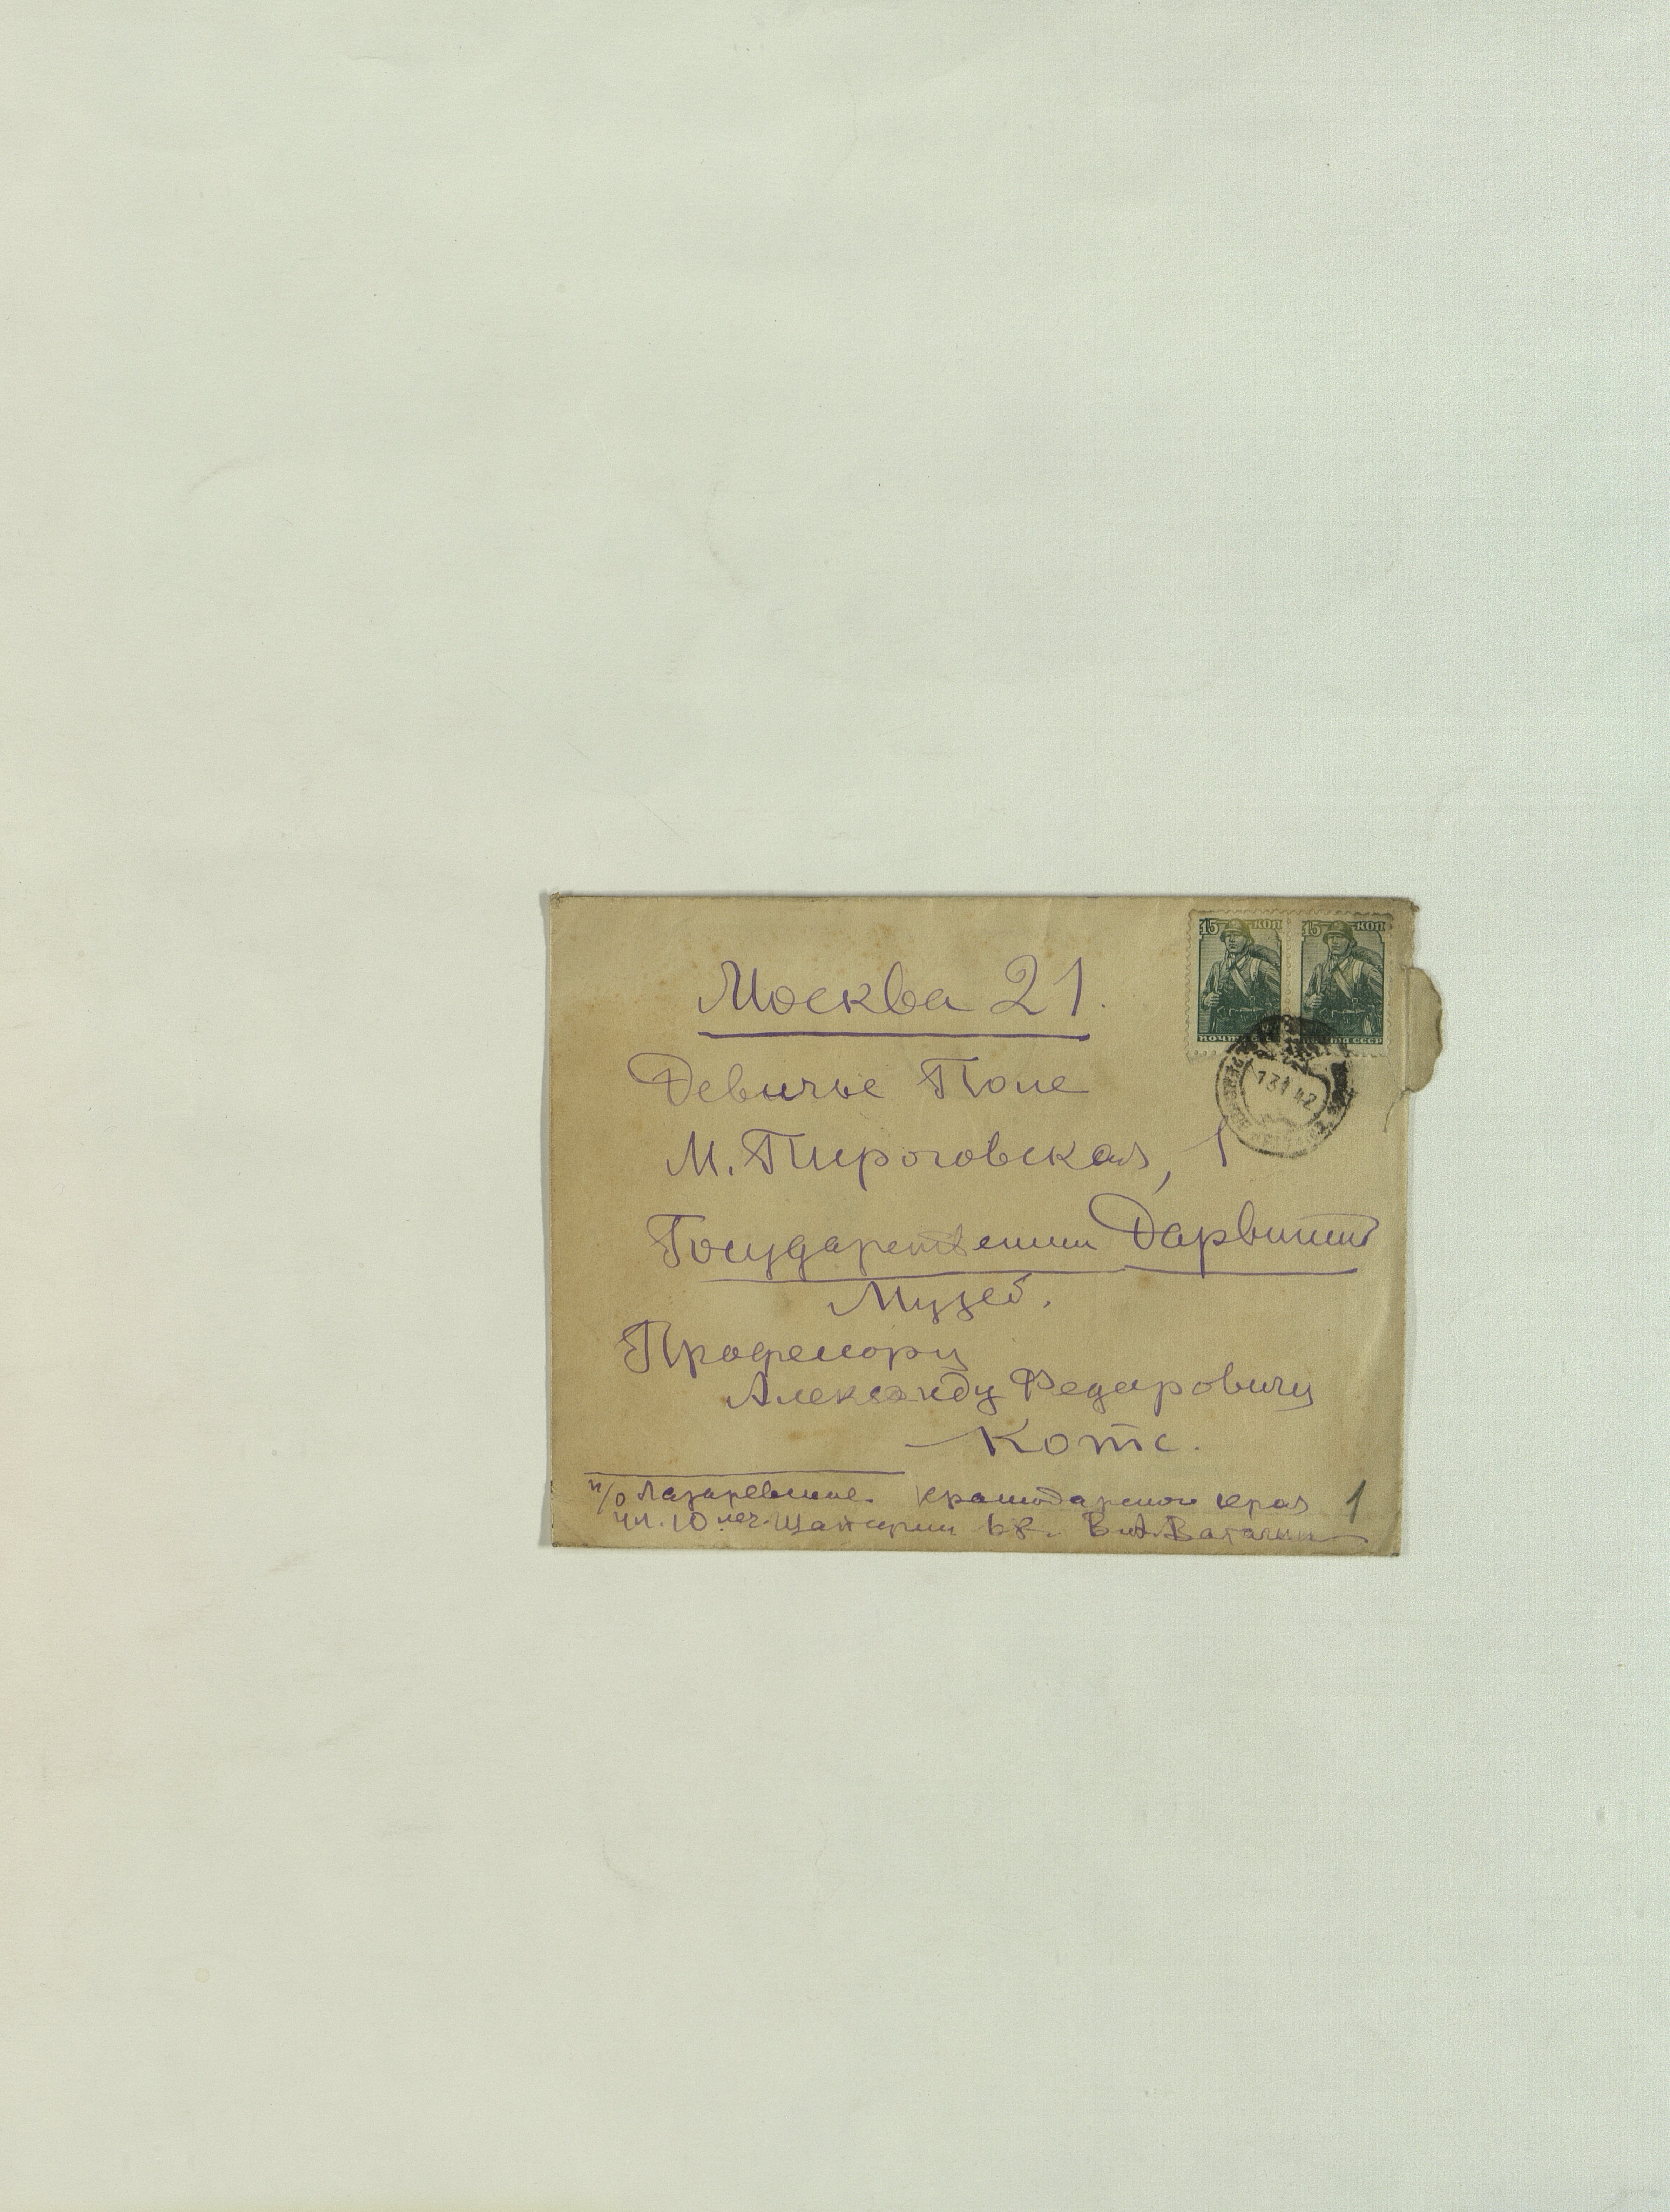 15 КОП 15 КОП
ПОЧТА СССР
Москва 21.
13 1 42
Девичье Поле
М. Пироговская, 1
Государственный Дарвинск
Музей.
Профессору
Александу Федоровичу
Котс.
п/о Лазаревское. Краснодарского края
ул. 10 лет В. А. Ватагин
1